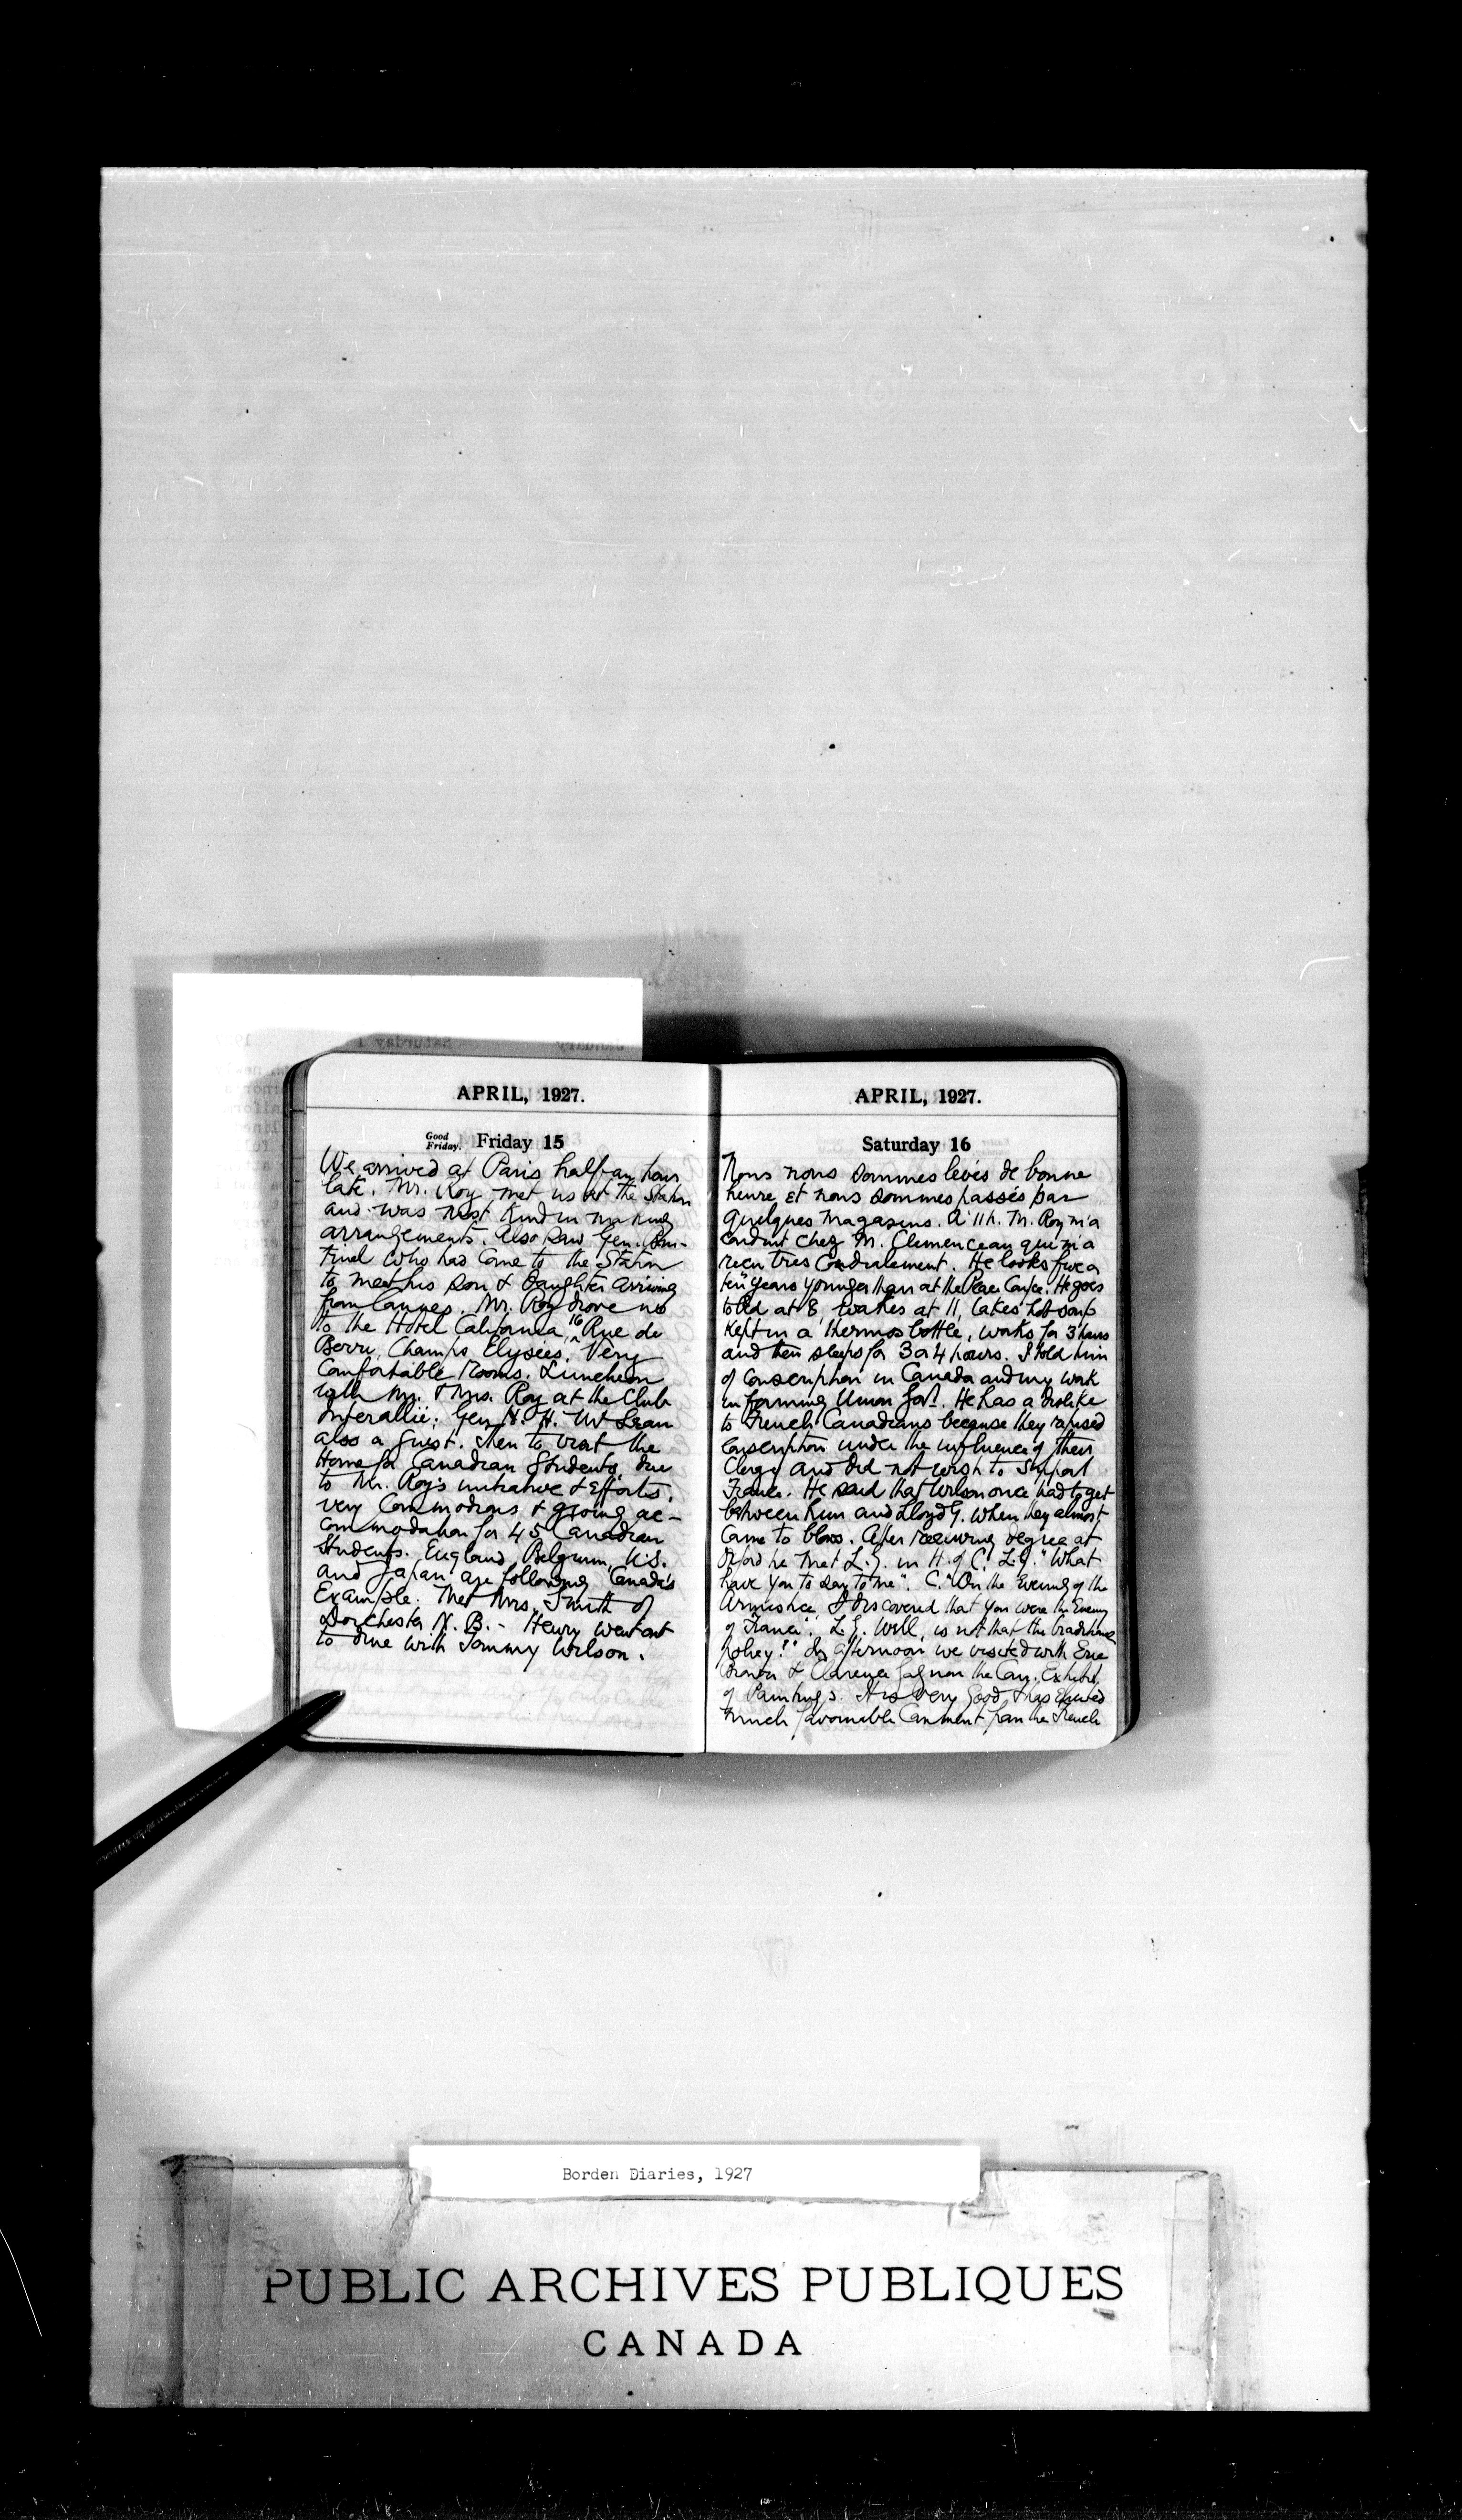 APRIL, 1927.
Good Friday. Friday 15
We arrived at Paris half an hour
late. Mr. Roy met us at the Station
and was most kind in making
arrangements. Also saw Gen.
who had come to the Station
to meet his son & daughter arriving
from Cannes. Mr. Roy drove us
to the Hotel California, 16 Rue de
Berri, Champs Elysées. Very
comfortable rooms. Luncheon
with Mr. & Mrs. Roy at the Club
Interallié; Gen H. H. McLean
also a guest. Then to visit the
Home for Canadian Students, due
to Mr. Roy's initiative & efforts,
very commodious & giving ac-
commodation for 45 Canadian
Students. England, Belgium, U.S.
and Japan are following Canada's
Example. Met Mrs. Smith of
Dorchester N. B. - Henry went out
to dine with Tommy Wilson.
APRIL, 1927.
Saturday 16
Nous nous sommes levés de bonne
heure et nous sommes passés par
quelques magasins. A 11 h. M. Roy m'a
conduit chez M. Clemenceau qui m'a
reçu très cordialement. He looks five or
ten years younger than at the Peace Confce. He goes
to bed at 8, wakes at 11, takes hot soup
kept in a thermos bottle, works for 3 hours
and then sleeps for 3 or 4 hours. I told him
of conscription in Canada and my work
in forming Union Govt. He has a dislike
to French Canadians because they refused
conscription under the influence of their
Clergy and did not wish to support
France. He said that Wilson once had to get
between him and Lloyd G. when they almost
came to blows. After receiving degree at
Oxford he met L.G. in H. of C. L.G. "What
have you to say to me". C. "On the Evening of the
Armistice I discovered that you were the Enemy
of France". L.G. Well, is not that the traditional
policy?" In afternoon we visited with Eric
Brown & Clarence Gagnon the Can. Exhibit.
of Paintings. It is very good & has excited
much favourable Comment from the French
Borden Diaries, 1927
PUBLIC ARCHIVES PUBLIQUES
CANADA